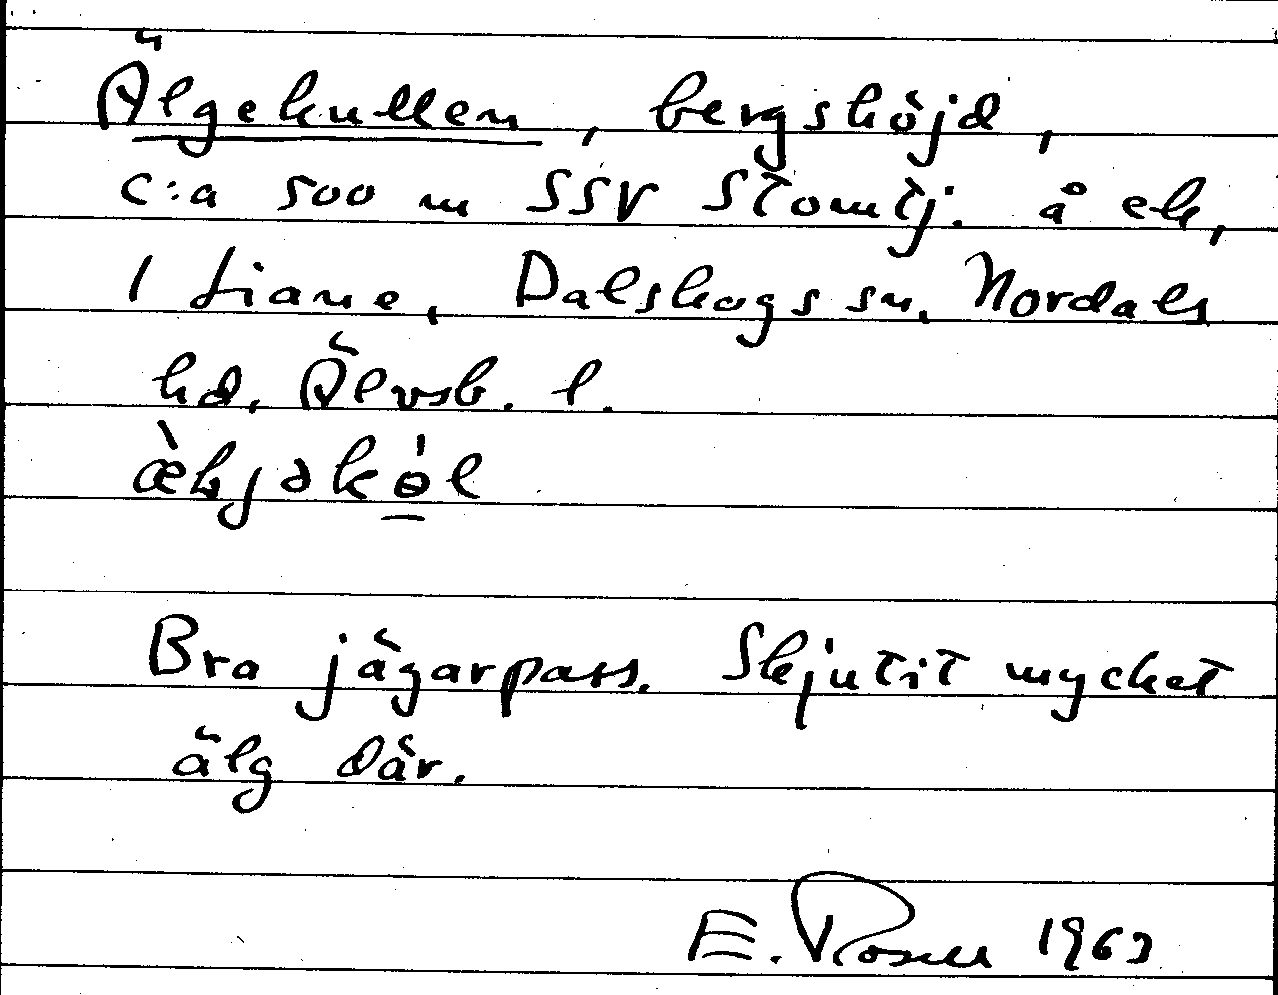 Älgekullen, bergshöjd,
c:a 500 m SSV Stomtj. å ek,
1 Liane, Dalskogs sn, Nordals
hd, Älvsb. l.
Bra jägarpass. Skjutit mycket
älg där.
E. Rosell 1963